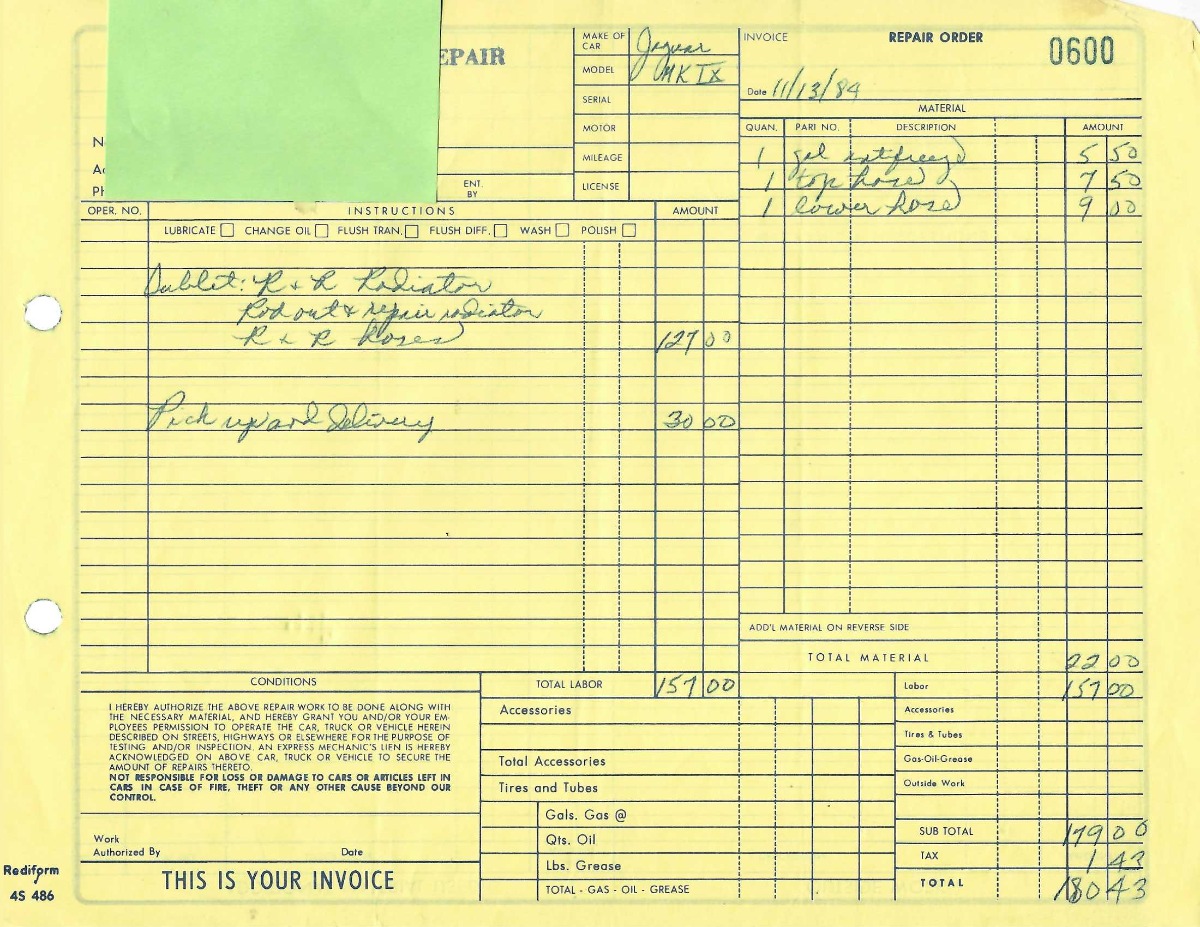 EPAIR
MAKE OF CAR Jaguar
MODEL MK IX
SERIAL
MOTOR
MILEAGE
LICENSE
ENT. BY
INVOICE REPAIR ORDER 0600
Date 11/13/84
MATERIAL
QUAN. PART NO. DESCRIPTION AMOUNT
1 gal antfreeze 5 50
1 top hose 7 50
1 lower hose 9 00
ADD'L MATERIAL ON REVERSE SIDE
TOTAL MATERIAL 22 00
OPER. NO. INSTRUCTIONS AMOUNT
LUBRICATE CHANGE OIL FLUSH TRAN. FLUSH DIFF. WASH POLISH
Sublet: R & R Radiator
Rod out & repair radiator
R & R Hoses 127 00
Pick up and Delivery 30 00
TOTAL LABOR 157 00
CONDITIONS
I HEREBY AUTHORIZE THE ABOVE REPAIR WORK TO BE DONE ALONG WITH
THE NECESSARY MATERIAL, AND HEREBY GRANT YOU AND/OR YOUR EM-
PLOYEES PERMISSION TO OPERATE THE CAR, TRUCK OR VEHICLE HEREIN
DESCRIBED ON STREETS, HIGHWAYS OR ELSEWHERE FOR THE PURPOSE OF
TESTING AND/OR INSPECTION. AN EXPRESS MECHANIC'S LIEN IS HEREBY
ACKNOWLEDGED ON ABOVE CAR, TRUCK OR VEHICLE TO SECURE THE
AMOUNT OF REPAIRS THERETO.
NOT RESPONSIBLE FOR LOSS OR DAMAGE TO CARS OR ARTICLES LEFT IN
CARS IN CASE OF FIRE, THEFT OR ANY OTHER CAUSE BEYOND OUR
CONTROL.
Work
Authorized By Date
THIS IS YOUR INVOICE
Rediform
4S 486
Accessories
Total Accessories
Tires and Tubes
Gals. Gas @
Qts. Oil
Lbs. Grease
TOTAL - GAS - OIL - GREASE
Labor 157 00
Accessories
Tires & Tubes
Gas-Oil-Grease
Outside Work
SUB TOTAL 179 00
TAX 1 43
TOTAL 180 43